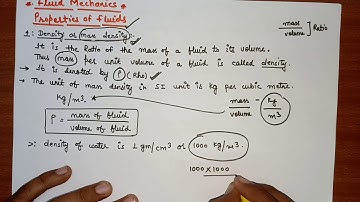 *. Fluid Mechanics
Properties of fluids
1. Density or (mass density) :-
It is the Ratio of the mass of a fluid to its volume.
Thus mass per unit volume of a fluid is called density.
→ It is denoted by ρ (Rho)
→ The unit of mass density in SI unit is kg per cubic metre.
kg/m³.
ρ = mass of fluid / volume of fluid
mass / volume ] Ratio
mass / volume = kg / m³
density of water is 1 gm/cm³ or 1000 kg/m³.
1000 × 1000